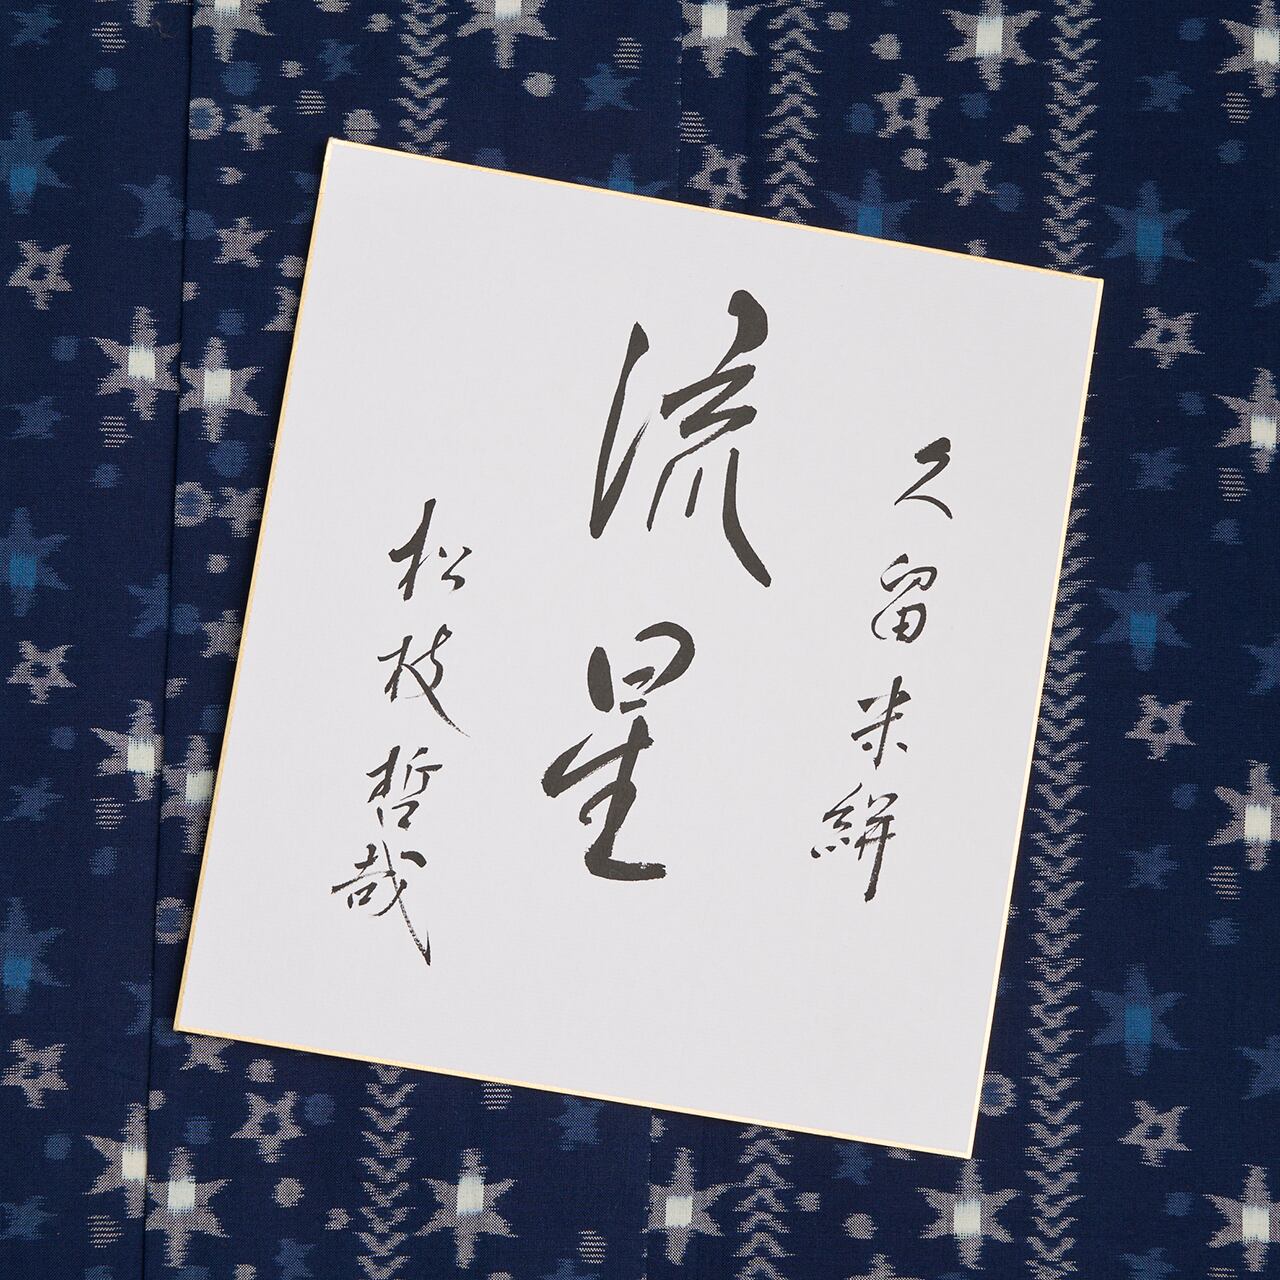 久留米絣
流星
松枝哲哉